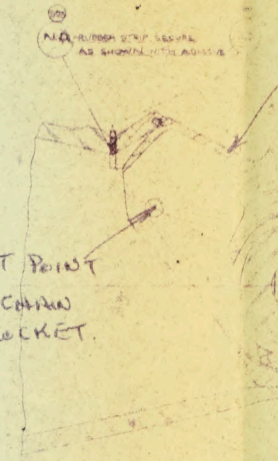 RUBBER STRIP SECURE
AS SHOWN WITH ADHESIVE
T POINT
CHAIN
OCKET.